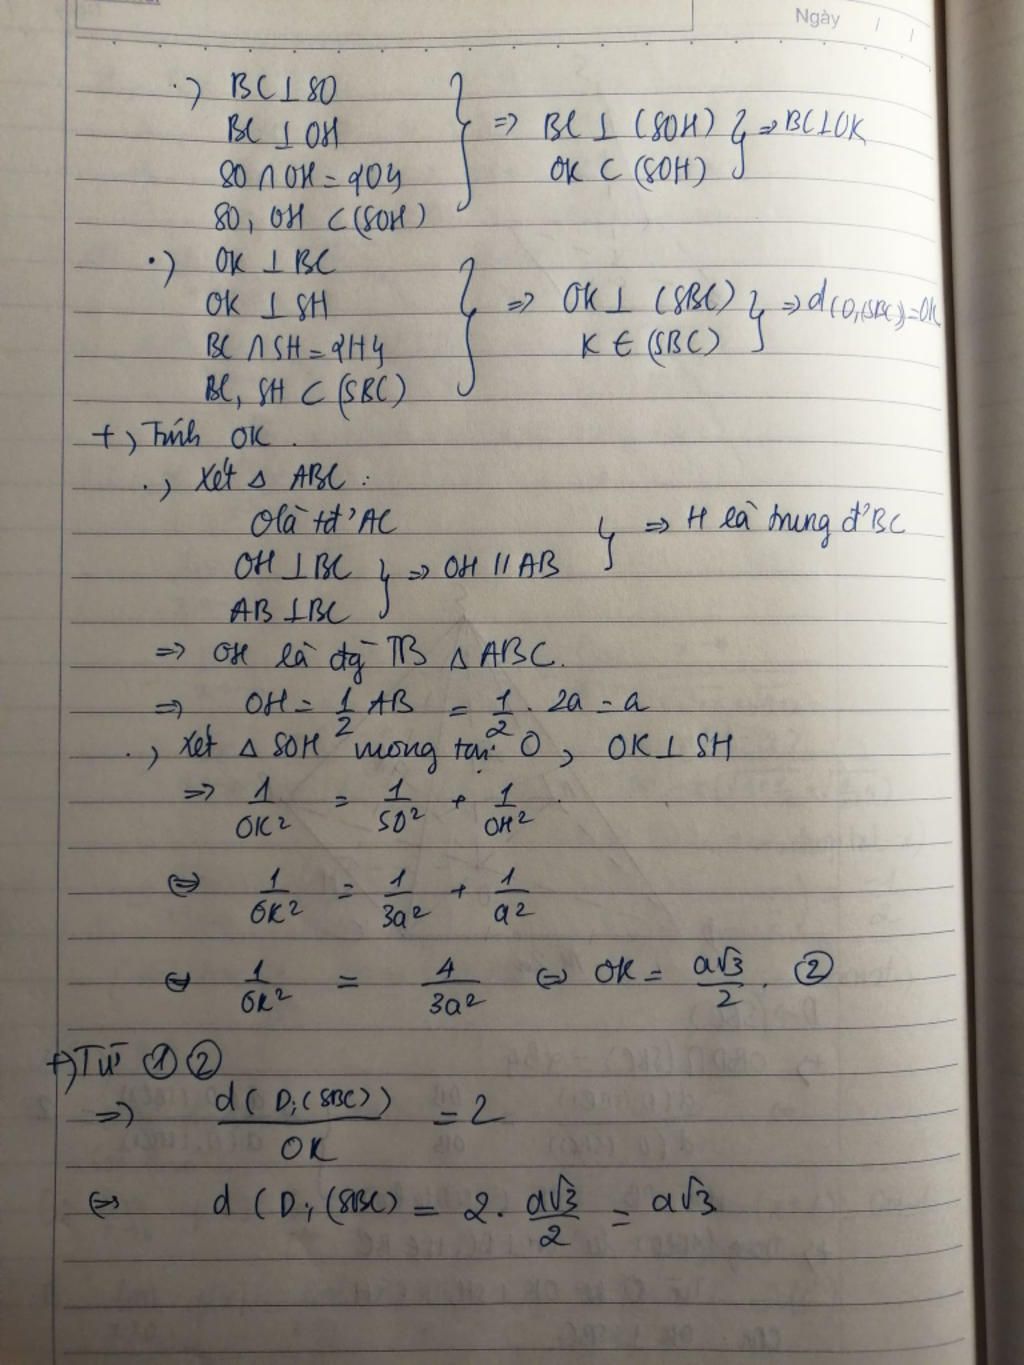 Ngày / /
·) BC ⊥ SO
BC ⊥ OH
SO ∩ OH = {O}
SO, OH ⊂ (SOH)
} => BC ⊥ (SOH)
OK ⊂ (SOH)
} => BC ⊥ OK
·) OK ⊥ BC
OK ⊥ SH
BC ∩ SH = {H}
BC, SH ⊂ (SBC)
} => OK ⊥ (SBC)
K ∈ (SBC)
} => d(O,(SBC)) = OK
+) Tính OK.
·) Xét Δ ABC :
O là tđ' AC
OH ⊥ BC
AB ⊥ BC
} => OH // AB
} => H là trung đ' BC
=> OH là đg TB Δ ABC.
=> OH = 1/2 AB = 1/2 . 2a = a
·) Xét Δ SOH vuông tại O, OK ⊥ SH
=> 1/OK² = 1/SO² + 1/OH²
<=> 1/OK² = 1/3a² + 1/a²
<=> 1/OK² = 4/3a² <=> OK = a√3/2 . ②
+) Từ ① ②
=> d(D;(SBC))/OK = 2
<=> d(D;(SBC) = 2. a√3/2 = a√3